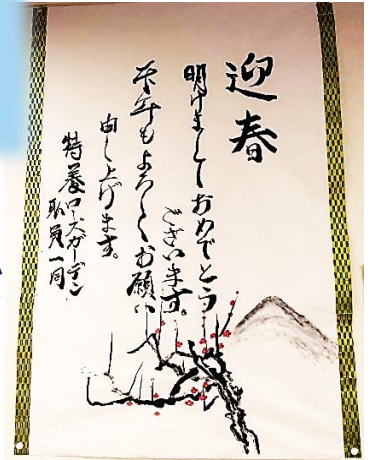 迎春
明けましておめでとう
ございます。
本年もよろしくお願い
申し上げます。
特養ローズガーデン
職員一同